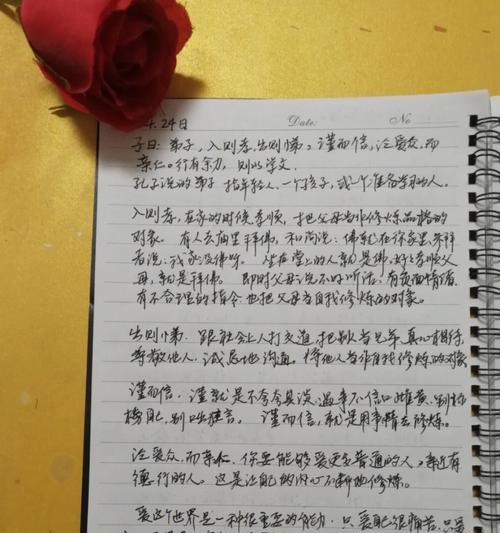 24日
Date:
No
子曰：弟子，入则孝，出则悌，谨而信，泛爱众，而
亲仁。行有余力，则以学文。
孔子说的弟子 指年轻人，一个孩子，或一个准备学习的人。
入则孝，在家的时候孝顺，把父母当作修炼品格的
对象。有人去庙里拜佛，和尚说：佛就在你家里，来拜
者说：我家没佛听。坐在堂上的人就是佛，好好孝顺父
母，就是拜佛。即时父母说不好听话，有负面情绪，
有不合理的指令也把父母当自我修炼的对象。
出则悌，跟社会上人打交道，把别当兄弟，真心相待，
尊敬他人，诚恳地沟通，将他人当作自我修炼的对象
谨而信，谨就是不夸夸其谈，遇事不信口雌黄，别
自己，别 狂言。谨而信，就是用事情去修炼。
泛爱众，而亲仁，你要能够爱更多普通的人，亲近有
德行的人。这是让自己的内心不断地修炼。
爱这个世界是一种很重要的能力，只爱自己很痛苦，只